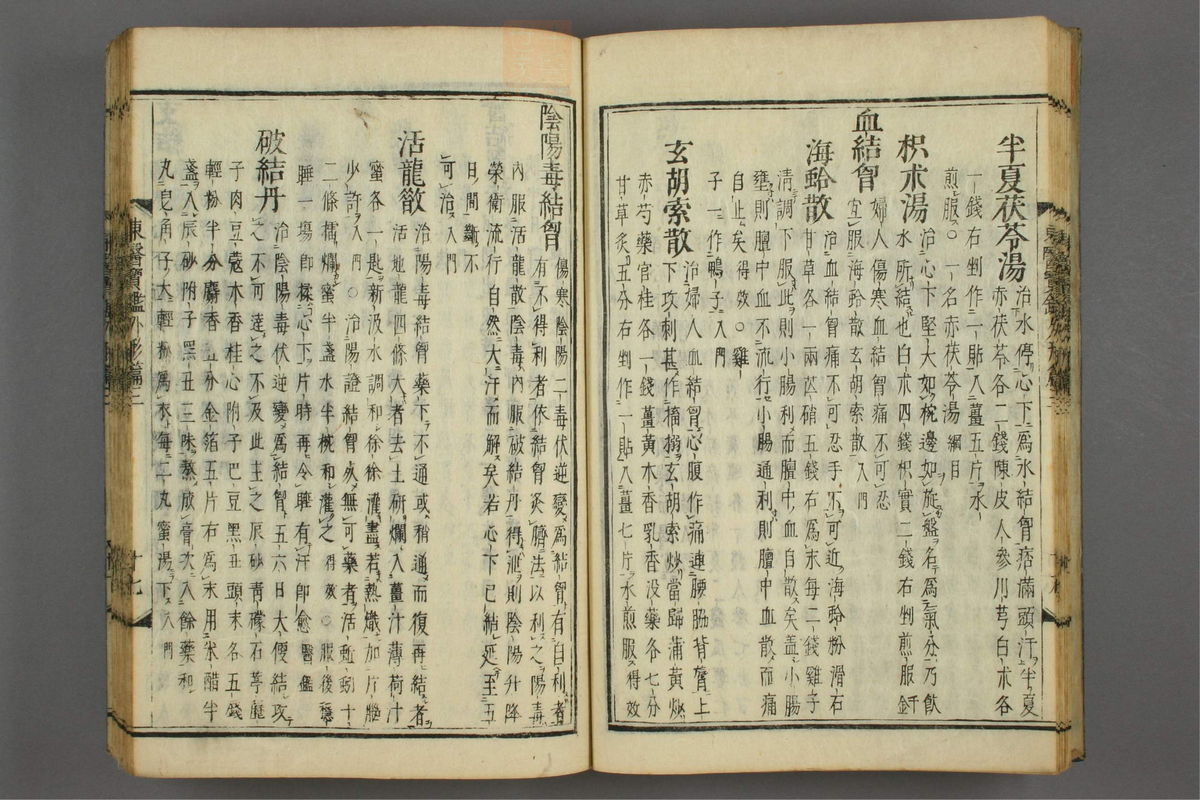 半夏茯苓湯 治水停心下爲水結胷痞滿頭汗半夏
赤茯苓各二錢陳皮人參川芎白朮各
一錢右剉作一貼入薑五片水
煎服○一名赤茯苓湯 綱目
枳朮湯 治心下堅大如椀邊如旋盤名爲氣分乃飮
水所結也白朮四錢枳實二錢右剉煎服
血結胷 婦人傷寒血結胷痛不可忍
宜服海蛤散玄胡索散 入門
海蛤散 治血結胷痛不可忍手不可近海蛤粉滑石
甘草各一兩芒硝五錢右爲末每二錢雞子
清調下服此則小腸利而膻中血自散矣盖小腸
壅則膻中血不流行小腸通利則膻中血散而痛
自止矣 得效 ○雞
子一作鴨子 入門
玄胡索散 治婦人血結胷心腹作痛連腰脇背膂上
下攻刺甚作搐搦玄胡索炒當歸蒲黃炒
赤芍藥官桂各一錢薑黃木香乳香没藥各七分
甘草灸五分右剉作一貼入薑七片水煎服 得效
陰陽毒結胷 傷寒陰陽二毒伏逆變爲結胷有自利者
有不得利者依結胷灸臍法以利之陽毒
內服活龍散陰毒內服破結丹得泄則陰陽升降
榮衛流行自然大汗而解矣若心下已結延至五
日間斷不
可治 入門
活龍散 治陽毒結胷藥下不通或稍通而復再結者
活地龍四條大者去土研爛入薑汁薄荷汁
蜜各一匙新汲水調和徐徐灌盡若熱熾加片腦
少許 入門 ○治陽證結胷久無可藥者活蚯蚓十
二條擂爛蜜半盞水半椀和灌之 得效 ○服後穩
睡一場卽揉心下片時再令睡有汗卽愈 醫鑑
破結丹 治陰陽毒伏逆變爲結胷五六日大便結攻
之不可達之不及此主之辰砂靑礞石葶藶
子肉豆蔲木香桂心附子巴豆黑丑頭末各五錢
輕粉半分麝香五分金箔五片右爲末用米醋半
盞入辰砂附子黑丑三味熬成膏次入餘藥和
丸皂角子大輕粉爲衣每二丸蜜湯下 入門
東醫寶鑑外形篇三
廿七